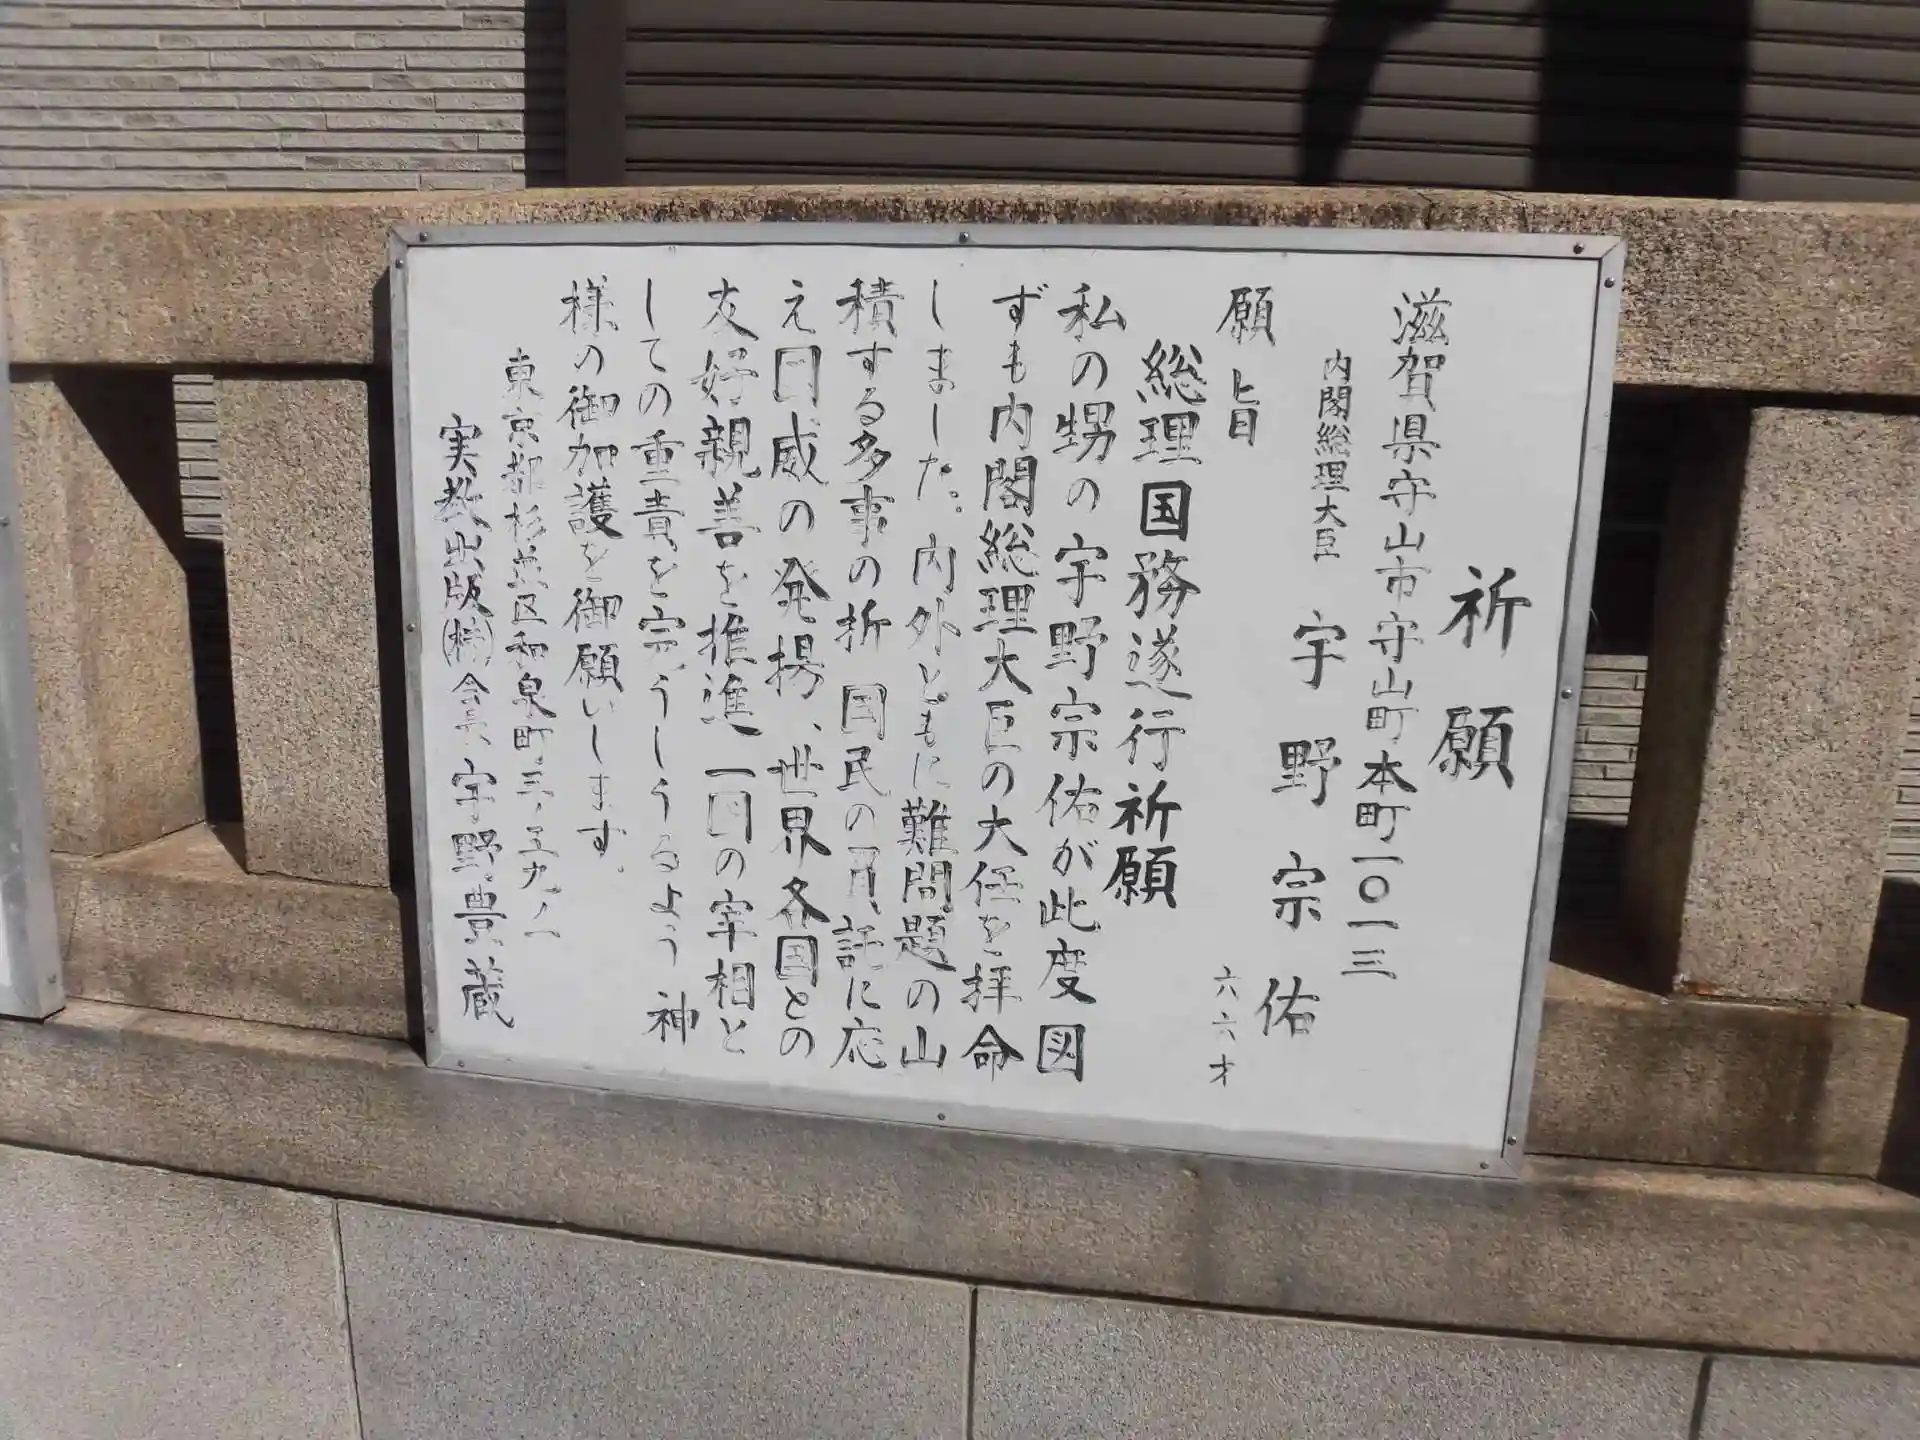 祈願
滋賀県守山市守山町本町一〇一三
内閣総理大臣 宇野宗佑
六六才
願旨
総理国務遂行祈願
私の甥の宇野宗佑が此度図
ずも内閣総理大臣の大任を拝命
しました。内外ともに難問題の山
積する多事の折 国民の負託に応
え国威の発揚、世界各国との
友好親善を推進 一国の宰相と
しての重責を完うしうるよう 神
様の御加護を御願いします。
東京都杉並区和泉町三、五九、二
実教出版(株)会長、宇野豊蔵